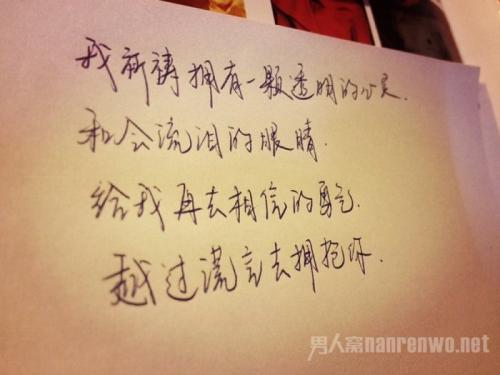 我祈祷拥有一颗透明的心灵.
和会流泪的眼睛.
给我再去相信的勇气.
越过谎言去拥抱你.
男人窝nanrenwo.net